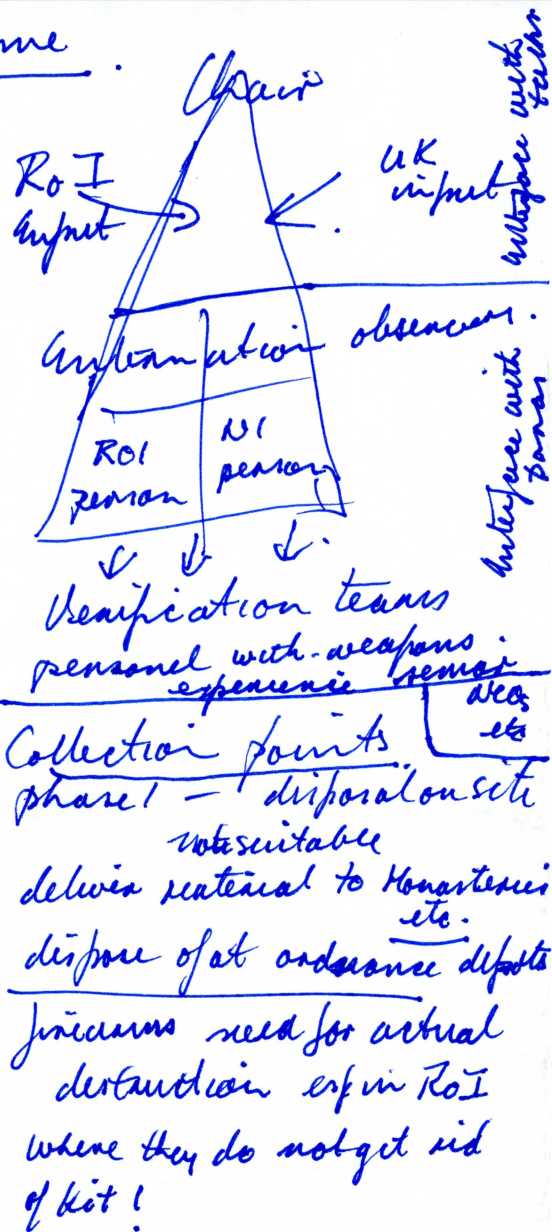 me
Chair
RoI
input
UK
input
Interface with
International observers.
ROI
person
NI
person
Interface with
Verification teams
personel with weapons
experience senior
etc
Collection points.
phase 1 — disposal on site
not suitable
deliver material to Monasteries
etc.
dispose of at ordnance depots
firearms need for actual
destruction esp in RoI
where they do not get rid
of kit!